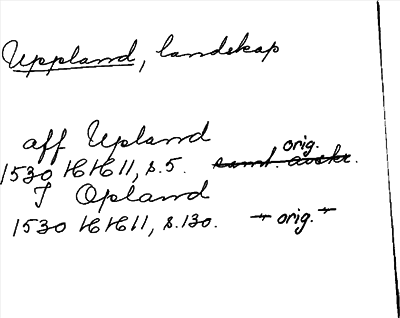 Uppland, landskap
aff Upland
orig.
1530 HH 11, s. 5. samt. avskr.
I Opland
1530 HH 11, s. 130. -"- orig. -"-